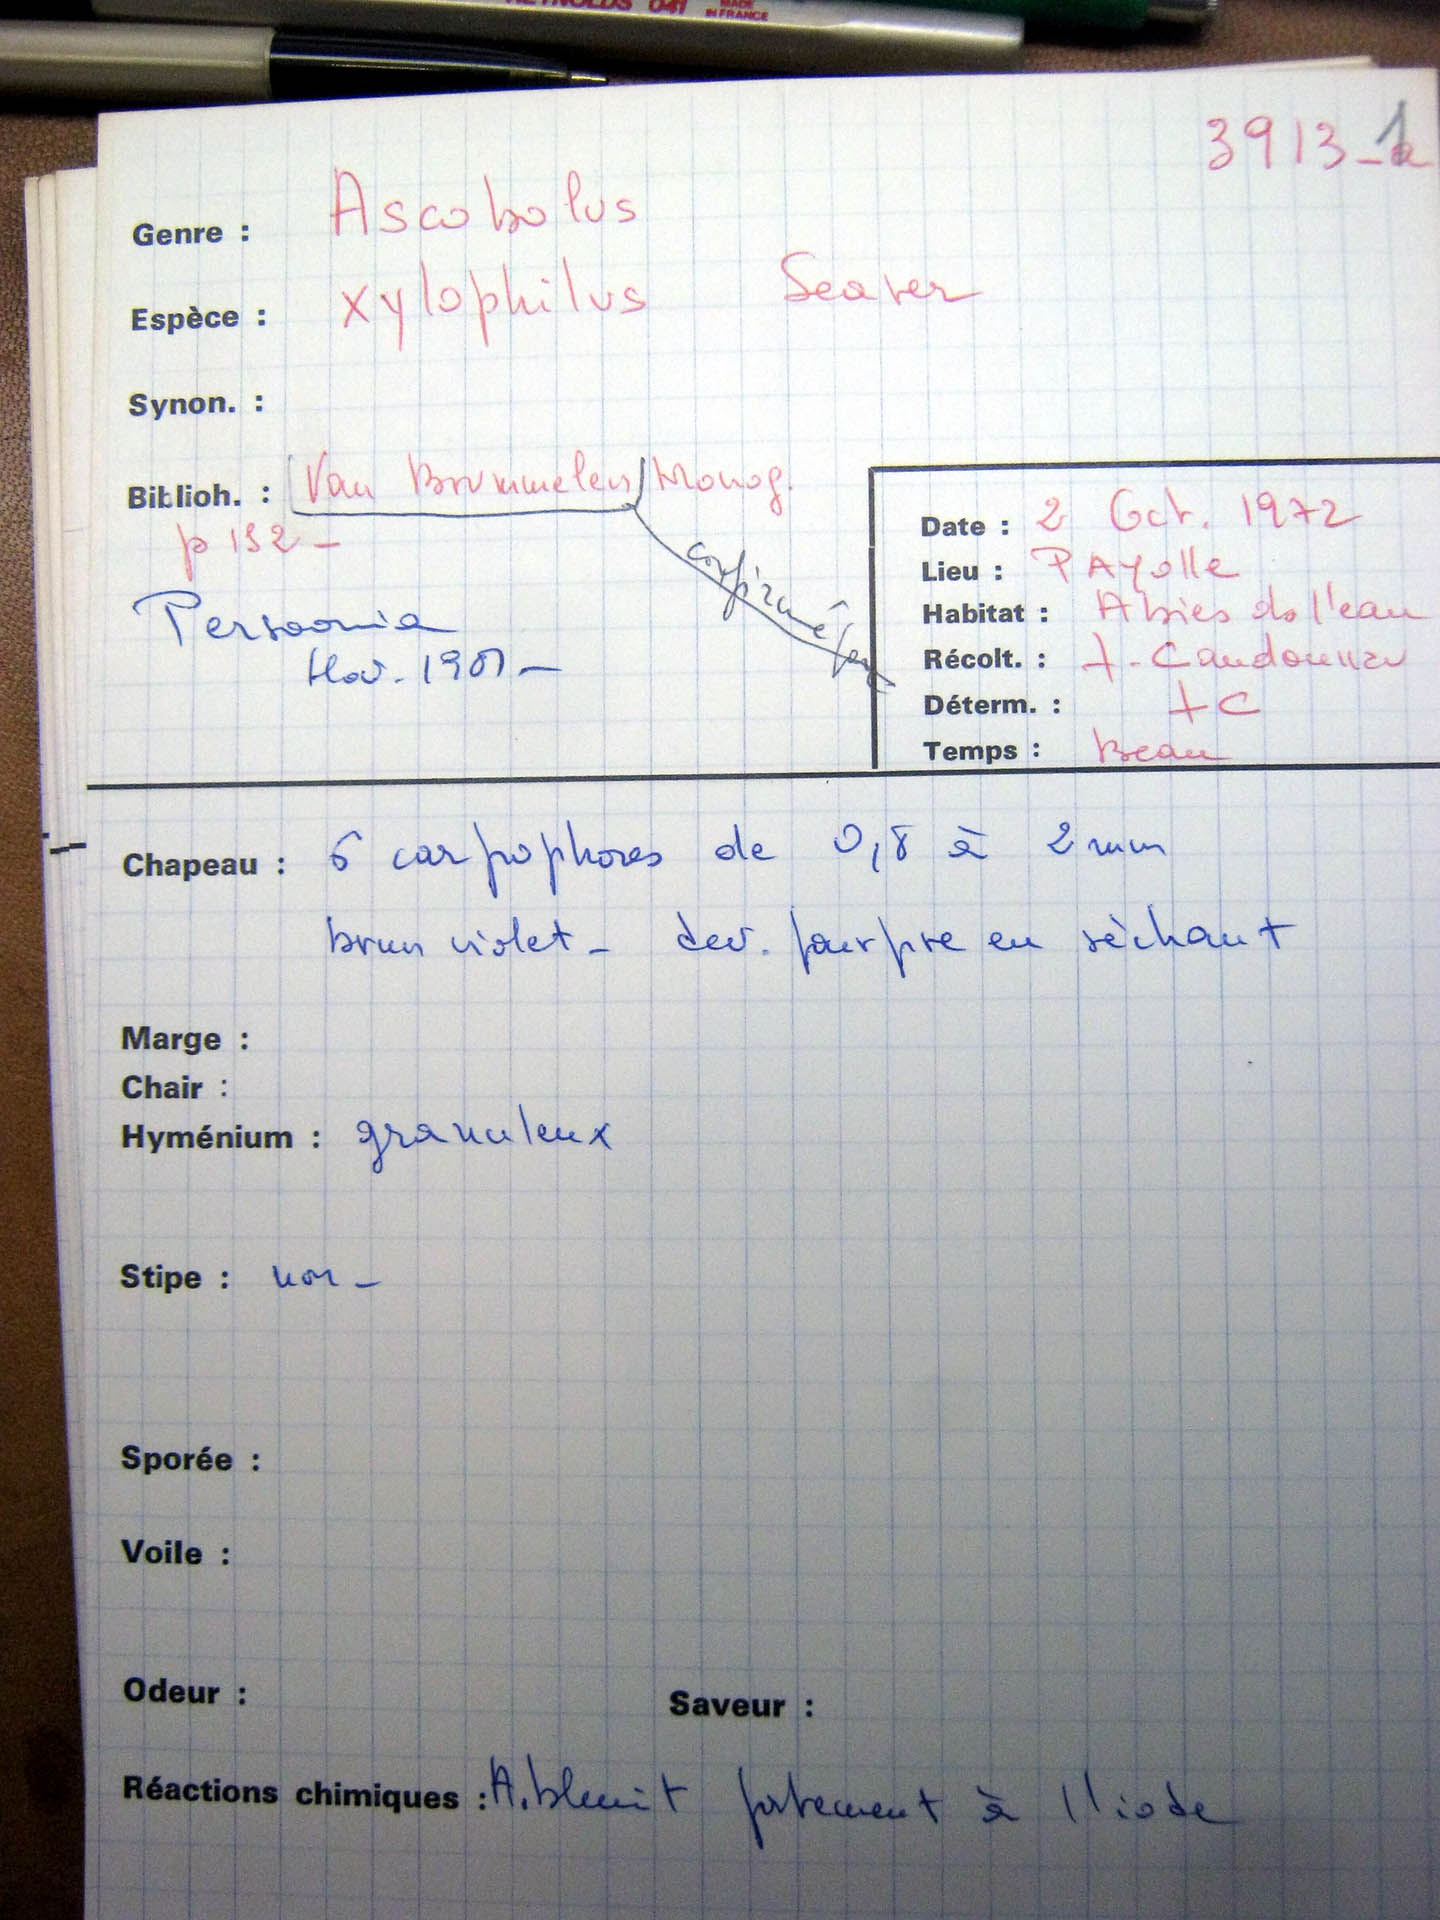 REYNOLDS 041 MADE IN FRANCE
3913-1
Genre : Ascobolus
Espèce : xylophilus Seaver
Synon. :
Biblioh. : Van Brummelen Monog.
p 192 -
confirmé par
Persoonia
Nov. 1981 -
Date : 2 Oct. 1972
Lieu : PAyolle
Habitat : Abies ds l'eau
Récolt. : F. Candoussau
Déterm. : FC
Temps : Beau
Chapeau : 6 carpophores de 0,8 à 2 mm
brun violet - dev. pourpre en séchant
Marge :
Chair :
Hyménium : granuleux
Stipe : non -
Sporée :
Voile :
Odeur : Saveur :
Réactions chimiques : A. bleuit fortement à l'iode